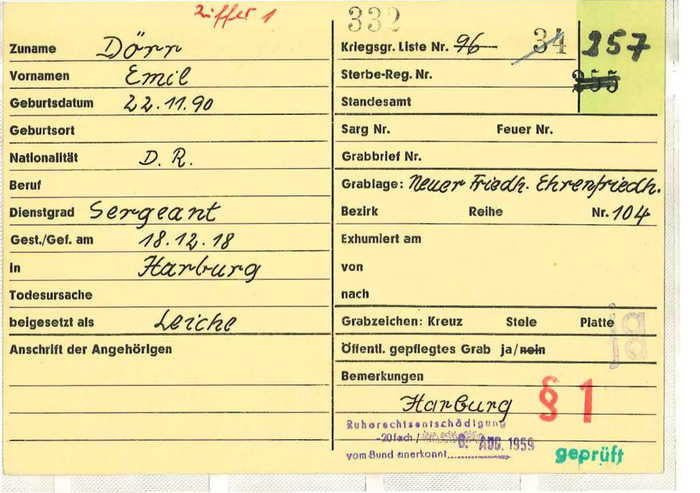 Ziffer 1
332
Zuname Dörr
Vornamen Emil
Geburtsdatum 22.11.90
Geburtsort
Nationalität D. R.
Beruf
Dienstgrad Sergeant
Gest./Gef. am 18.12.18
in Harburg
Todesursache
beigesetzt als Leiche
Anschrift der Angehörigen
Kriegsgr. Liste Nr. 96 34 257
Sterbe-Reg. Nr. 255
Standesamt
Sarg Nr. Feuer Nr.
Grabbrief Nr.
Grablage: Neuer Friedh. Ehrenfriedh.
Bezirk Reihe Nr. 104
Exhumiert am
von
nach
Grabzeichen: Kreuz Stele Platte
ja
Öffentl. gepflegtes Grab ja/nein
ja
Bemerkungen
Harburg § 1
Ruherechtsentschädigung
-20fach / 6. AUG. 1959
vom Bund anerkannt
geprüft